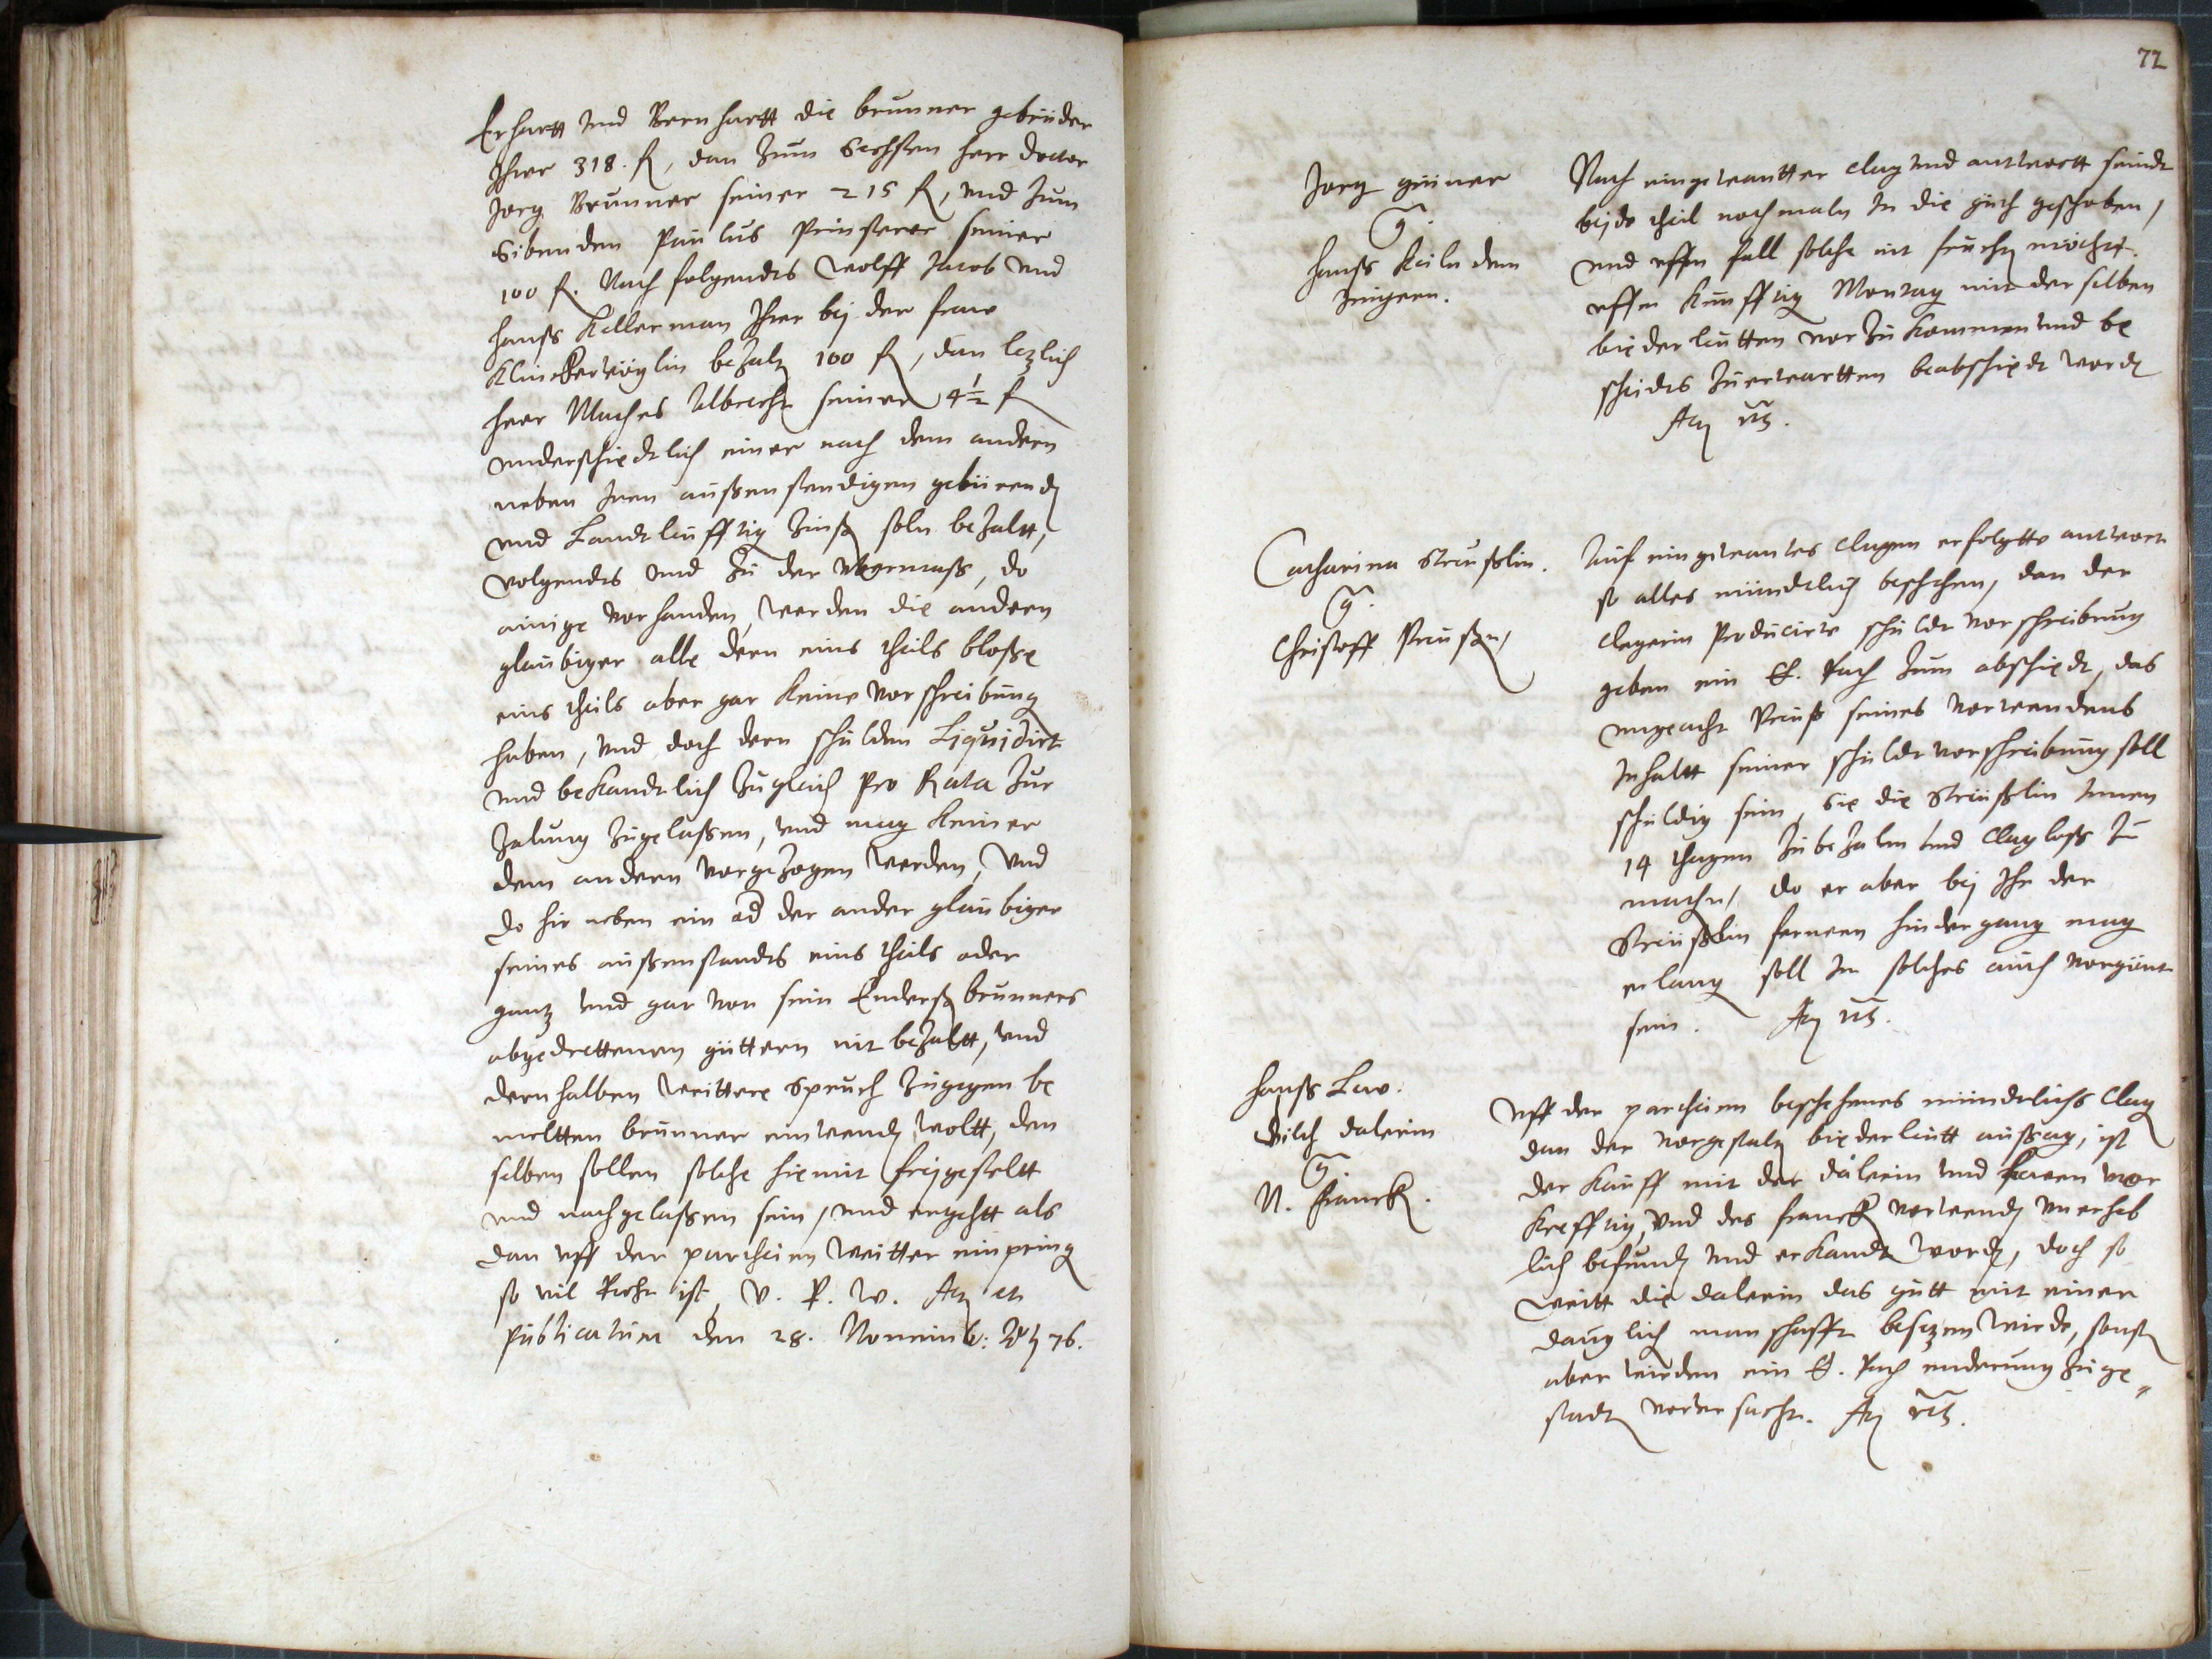 Erhartt vnd Bernhartt die brunner gebrüder
Ihrer 318. fl, dan zum Sechsten herr doctor
Jorg Brunner seiner 215 fl, vnd zum
Sibenden Paulus seiner
100 fl. Nachfolgendts Wolff Jacob vnd
Hanß Kellerman Ihrer bej der fraw
bezalt 100 fl, dan lezlich
herr Albrecht seiner 4½ fl
vnderschiedtlich einer nach dem andern
neben Iren außenstendigen gebürend
vnd Landtleufftig Zinß soln bezaltt,
volgendts vnd zu der vbermaß, do
ainige vorhanden, werden die andern
glaubiger alle dern eins theils bloße
eins theils aber gar keine vorschreibung
haben, vnd doch dern schulden Liquidirt
vnd bekandtlich zugleich pro Rata zur
Zalung zugelaßen, vnd mag keiner
dem andern vorgezogen werden, Vnd
do hirneben ein od der ander glaubiger
seines außenstandts eins theils oder
gantz vnd gar von sein Enderß brunners
abgedrettenen güttern nit bezaltt, vnd
dernhalben weittere Spruch zugegen be
meltten brunner einwend woltt, den
selben sollen solche hiemit freygesteltt
vnd nachgelaßen sein, vnd ergehtt als
dan vff der partheien weitter einpring
so vil Recht ist, V. R. W. Act et
publicatum den 28. Novemb: 76.
72
Jorg
g.
Hanß Keiln dem
Jüngern.
Nach eingewantter clag vnd antwortt seindt
beyde theil nochmaln In die güth geschoben,
vnd vffn fall solche nit fruchtn möchte
vffn künfftig Montag mit derselben
biederleutten vorzukommen vnd be
scheidts zuerwartten beabschiedt word
Act vts.
Catharina Streußlin.
g.
Christoff Preußn,
Auf eingewantes clagen erfolgtte antwort
so alles mündtlich beschehen, dan der
clegerin Producirte schuldt vorschreibung
geben ein E. Rath zum abschiedt, das
vngeacht Preuß seines vorwendens
Inhaltt seiner schuldt vorschreibung soll
schuldig sein, Sie die Streußlin Innen
14 thagen zubezaln vnd clagloß zu
machn, do er aber bej Ihr der
Streußlin fernern hindergang mag
erlang soll Im solches auch vorgünt
sein. Act vts.
Hanß Law.
g.
N. Franck.
Vff der partheien beschehenes mündtlichs clag
dan der vorgestaltn biederleutt aussag, ist
der kauff mit der dälerin vnd Lawen vor
krefftig, Vnd des francken vorwend vnerheb
lich befund vnd erkandt word, doch so
weitt die dalerin das gutt mit einer
dauglich manschafft besezen wirde, sonst
aber würden ein E. Rath enderung zuge=
stadt vorursacht. Act vts.